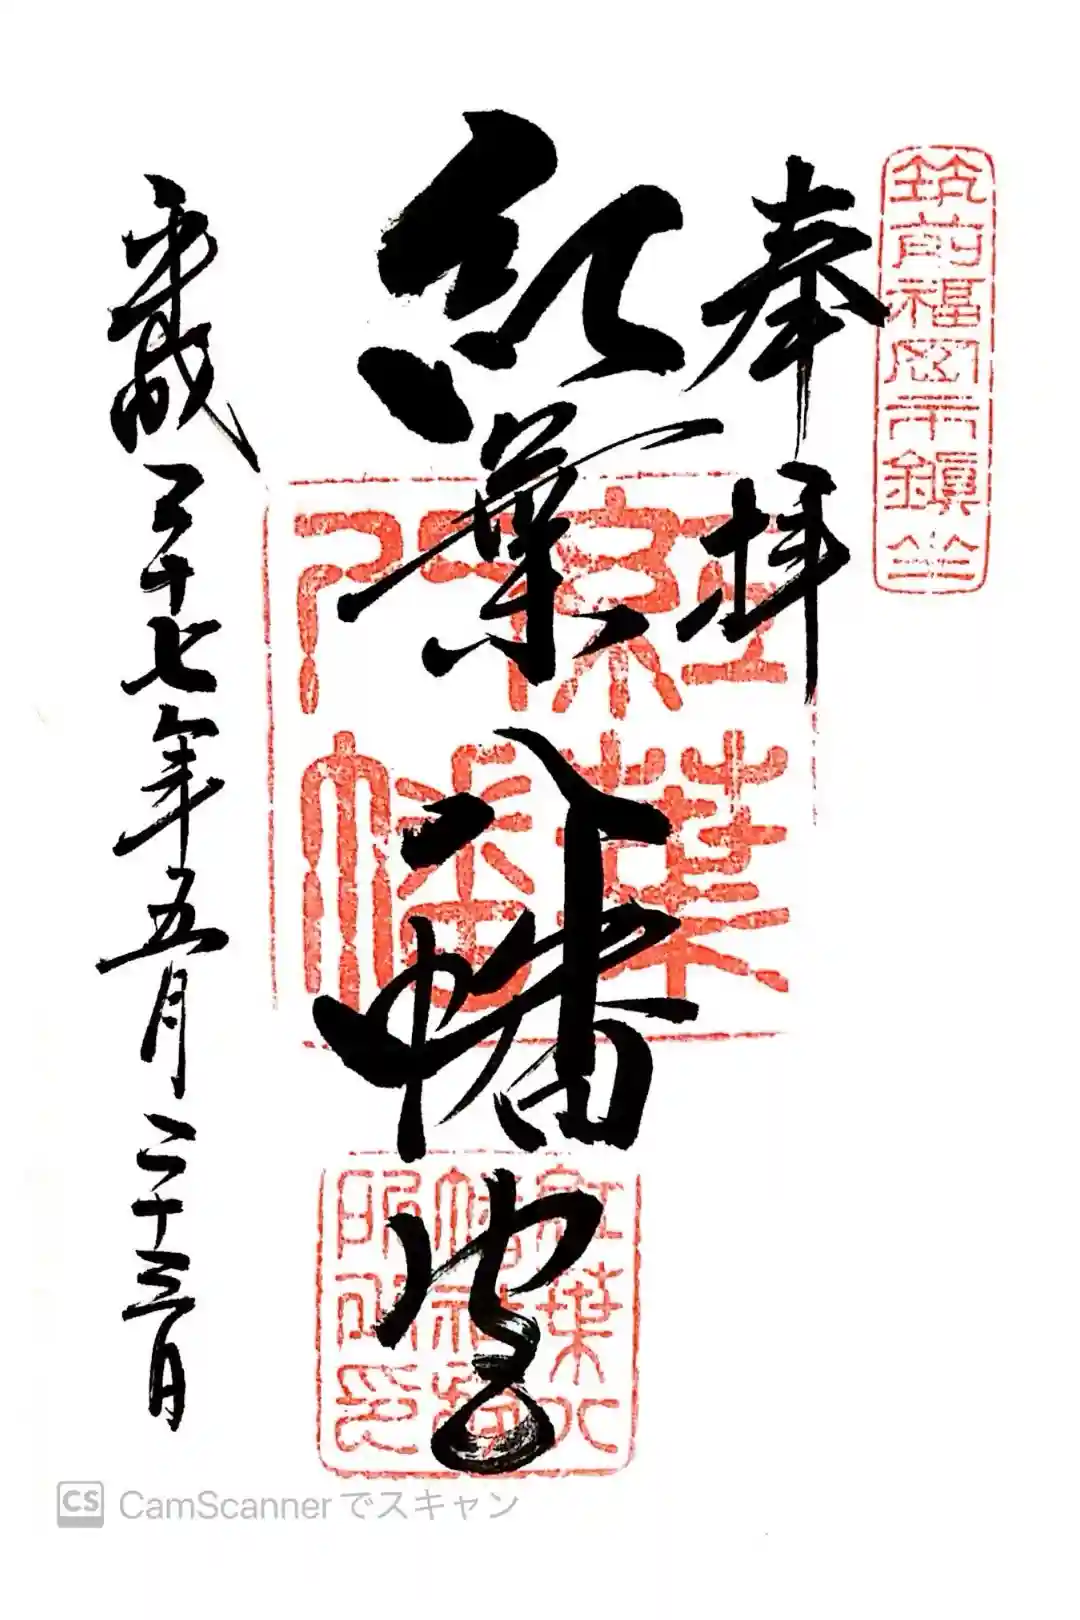 筑前福岡市鎭坐
奉拝
紅葉八幡宮
紅葉
八幡
紅葉八
幡社務
所之印
平成二十七年五月二十三日
CS CamScannerでスキャン